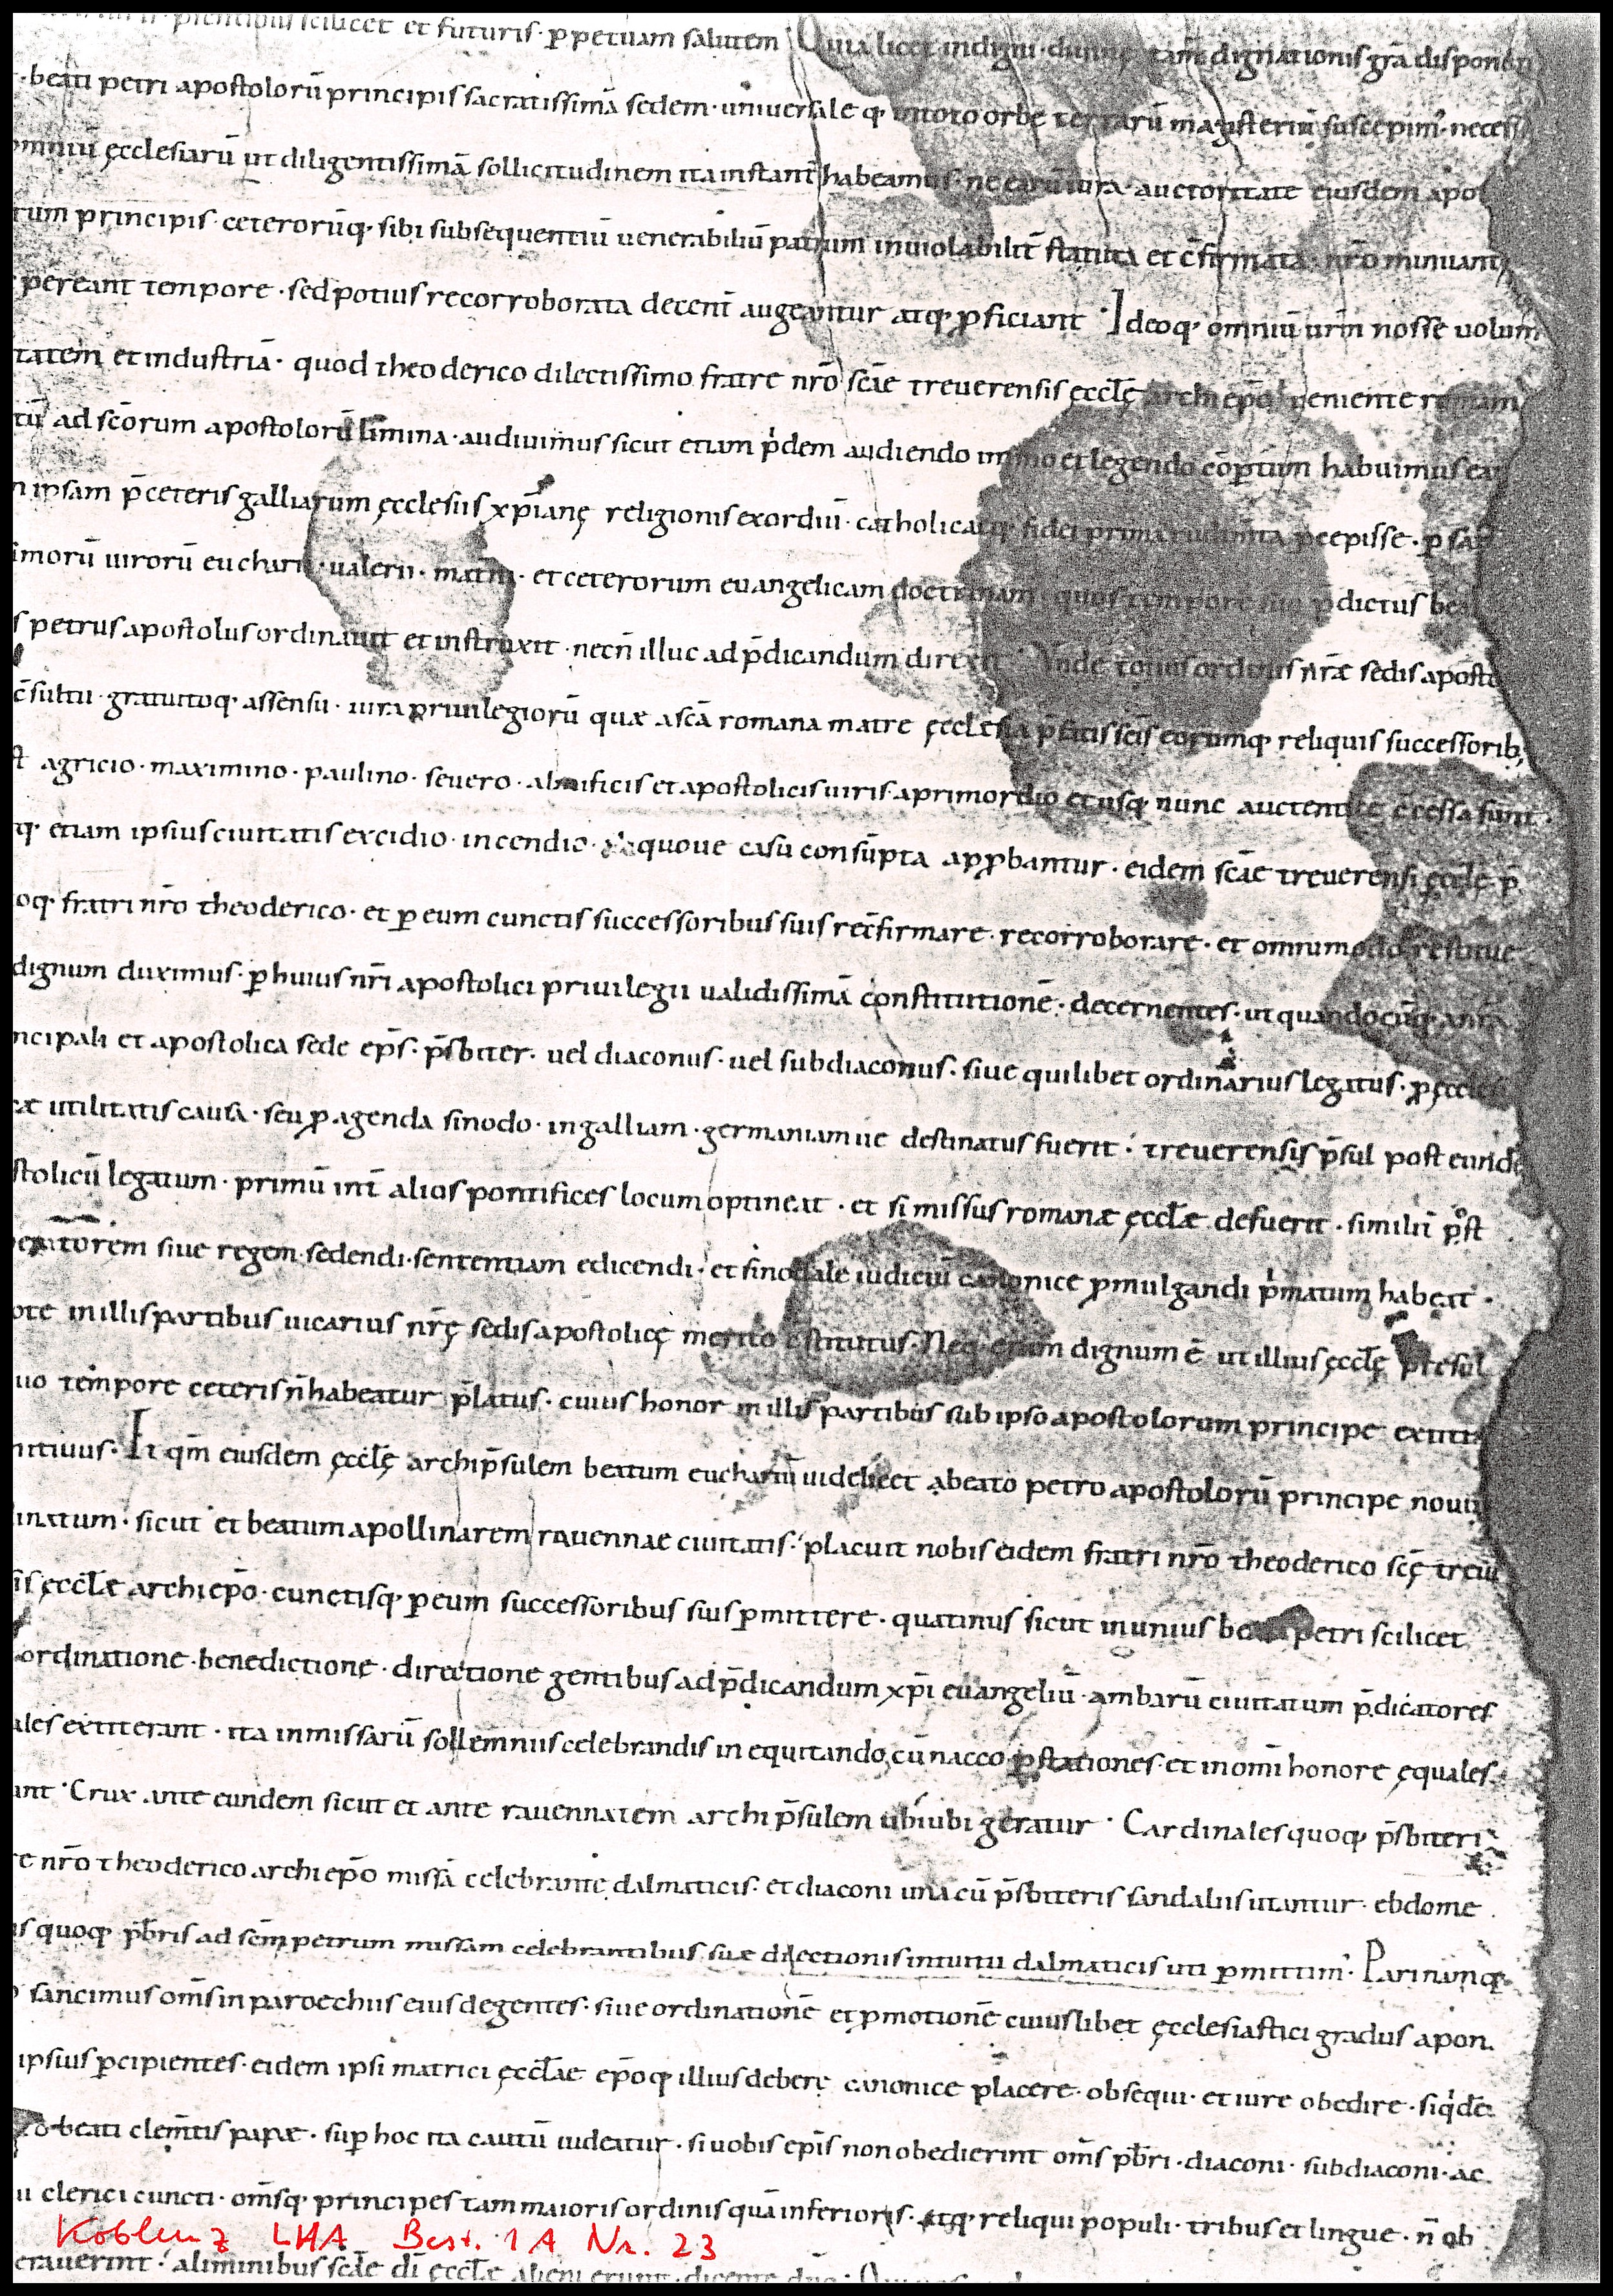 scilicet et futuris · ꝑpetuam salutem Quia licet indigni · tam̄ dignationis gr̄a disponen
· beati petri apostolorū principis sacratissimā sedem · universale q; intoto orbe terrarū magisteriū suscepim; · necess
omniū ęcclesiarū ut diligentissimā sollicitudinem ita instant̄ habeamus · ne earū iura · auctoritate eiusdem apos
rum principis · ceterorūq; sibi subsequentiū venerabiliū patrum inviolabilit̄ statuta et c̄firmata · nr̄o minuant
pereant tempore · sed potius recorroborata decent̄ augeantur atq; ꝓficiant · Ideoq; omniū urm̄ nosse volum
tatem et industriā · quod theoderico dilectissimo fratre nr̄o sc̄ae treverensis ęccl̄ę archiep̄o veniente romam
tū ad sc̄orum apostolorū limina · audivimus sicut etiam p̄dem audiendo immo et legendo cōptum habuimus ea
n ipsam p̄ ceteris galliarum ęcclesiis xp̄ianę religionis exordiū · catholicaeq; fidei prima rudim̄ta ꝑcepisse · ꝑ
imorū virorū eucharii · valerii · mat̄ni · et ceterorum evangelicam doctrinam · quos tempore suo p̄dictus bea
s petrus apostolus ordinavit et instruxit · necn̄ illuc ad p̄dicandum direxit · Unde totius ordinis nr̄æ sedis aposto
c̄sultu · gratuitoq; assensu · iura privilegiorū quæ a sc̄a romana matre ęcclesia p̄fatis sc̄is eorumq; reliquis successorib;
st agricio · maximino · paulino · severo · almificis et apostolicis viris a primordio et usq; nunc auctentice c̄cessa sunt ·
q; etiam ipsius civitatis excidio · incendio · aliquove casu consūpta apꝓbantur · eidem sc̄ae treverensi ęccl̄ę · p̄
oq; fratri nr̄o theoderico · et ꝑ eum cunctis successoribus suis rec̄firmare · recorroborare · et omnimodo restitue
dignum duximus · ꝑ huius nr̄i apostolici privilegii validissimā constitutionē · decernentes · ut quandocūq;
ncipali et apostolica sede ep̄s · p̄sbiter · vel diaconus · vel subdiaconus · sive quilibet ordinarius legatus · ꝓ ęccles
æ utilitatis causa · seu ꝓ agenda sinodo · in galliam · germaniamve destinatus fuerit · treverensis p̄sul post eund
stolicū legatum · primū int̄ alios pontifices locum optineat · et si missus romanæ ęccl̄æ defuerit · similit̄ post
eratorem sive regem sedendi · sententiam edicendi · et sinodale iudiciū canonice ꝓmulgandi p̄matum habeat ·
ote in illis partibus vicarius nr̄ę sedis apostolicę merito c̄stitutus · Neq; enim dignum ē ut illius ęccl̄ę presul
uo tempore ceteris n̄ habeatur p̄latus · cuius honor in illis partibus sub ipso apostolorum principe extitit
nitivus · Et qm̄ eiusdem ęccl̄ę archip̄sulem beatum euchariū videlicet abeato petro apostolorū principe novi
inatum · sicut et beatum apollinarem ravennae civitatis · placuit nobis eidem fratri nr̄o theoderico sc̄ę trev
is ęccl̄æ archiep̄o · cunctisq; ꝑ eum successoribus suis ꝑmittere · quatinus sicut in unius beati petri scilicet
ordinatione · benedictione · directione gentibus ad p̄dicandum xp̄i evangeliū · ambarū civitatum p̄dicatores
ales extiterant · ita in missarū sollemniis celebrandis in equitando cū nacco ꝑ stationes · et in om̄i honore ęquales
ant · Crux ante eundem sicut et ante ravennatem archip̄sulem ubiubi geratur · Cardinales quoq; p̄sbiteri
e nr̄o theoderico archiep̄o missā celebrante dalmaticis · et diaconi una cū p̄sbiteris sandaliis utantur · ebdome
is quoq; p̄bris ad sc̄m petrum missam celebrantibus suæ dilectionis intuitu dalmaticis uti ꝑmittim; · Pari namq;
sancimus om̄s in paroechiis eius degentes · sive ordinationē et ꝓmotionē cuiuslibet ęcclesiastici gradus a pon
ipsius ꝑcipientes · eidem ipsi matrici ęccl̄ae ep̄oq; illius debere canonice placere · obsequi · et iure obedire · siq̇dē
beati clem̄tis papæ · suꝑ hoc ita cautū videatur · si vobis ep̄is non obedierint om̄s p̄bri · diaconi · subdiaconi · ac
ii clerici cuncti · om̄sq; principes tam maioris ordinis quā inferioris · atq; reliqui populi · tribus et lingue · n̄ ob
Koblenz LHA Best. 1 A Nr. 23
eraverint · a liminibus sc̄æ dī ęccl̄æ alieni erunt · dicente dn̄o ·